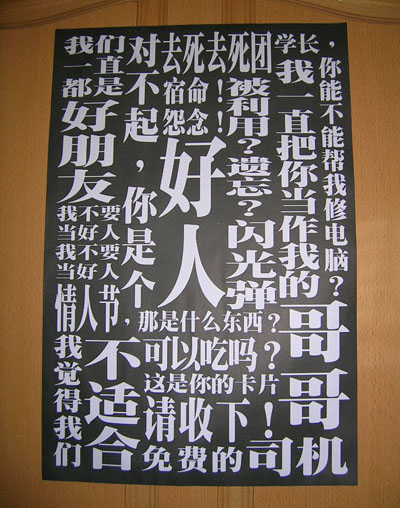 我们
一直
都是
好朋友
我不要
当好人
我不要
当好人
情人节，
那是什么东西？
可以吃吗？
我觉得我们
不适合
对不起，你是个，
好人
去死去死团
宿命！
怨念！
被利用？遗忘？闪光弹
学长，
你能不能帮我修电脑？
我一直把你当作我的
哥哥
这是你的卡片
请收下！
免费的司机